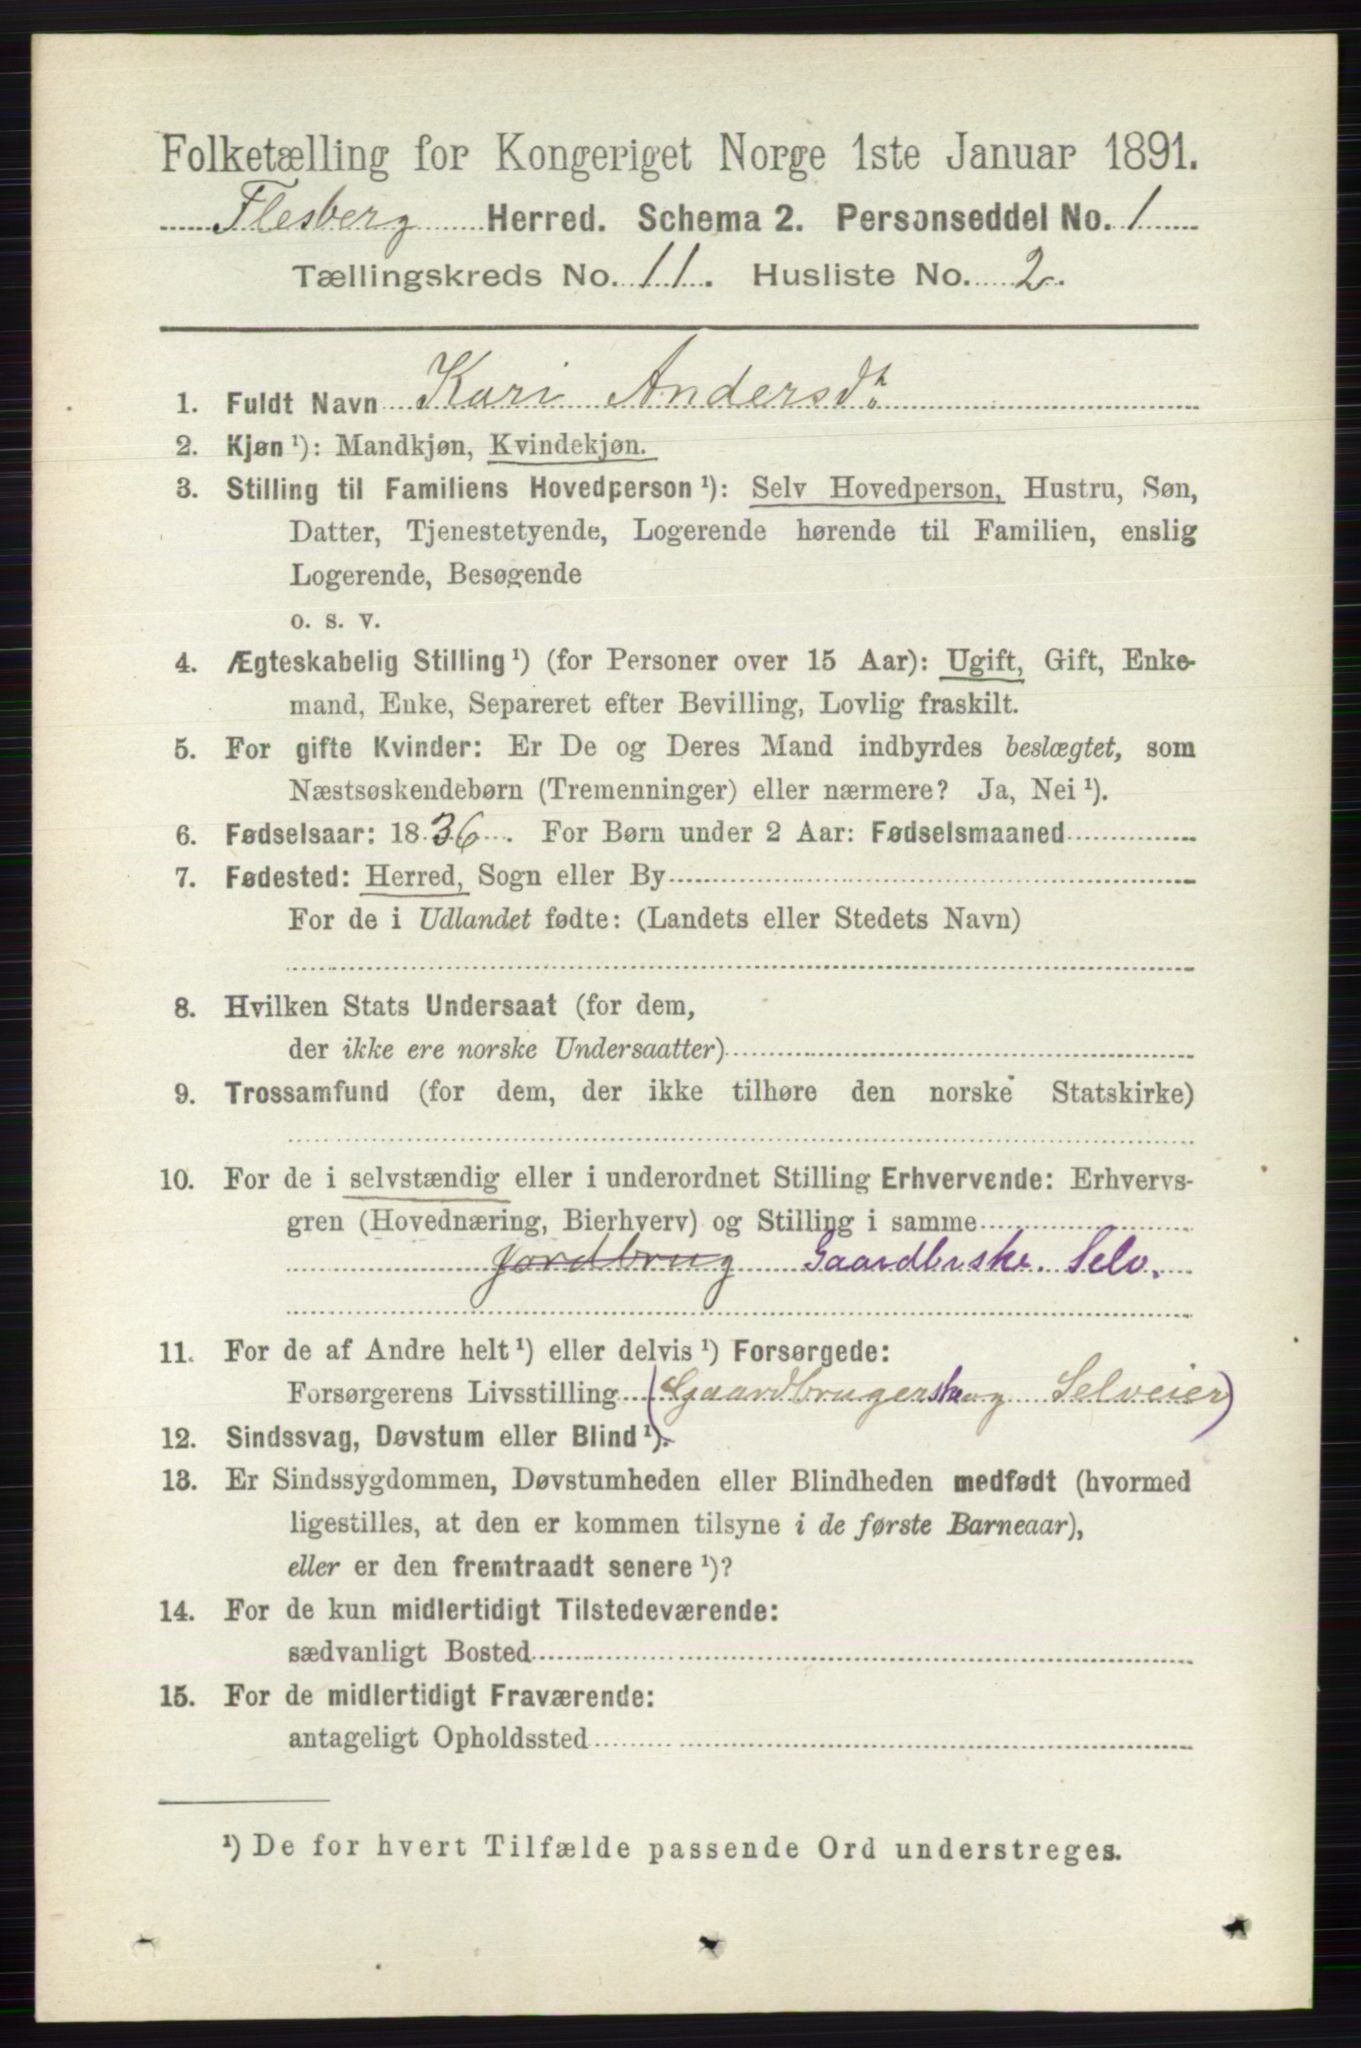 Folketælling for Kongeriget Norge 1ste Januar 1891.
Flesberg Herred. Schema 2. Personseddel No. 1
Tællingskreds No. 11. Husliste No. 2.
1. Fuldt Navn Kari Andersdr
2. Kjøn ¹): Mandkjøn, Kvindekjøn.
3. Stilling til Familiens Hovedperson ¹): Selv Hovedperson, Hustru, Søn,
Datter, Tjenestetyende, Logerende hørende til Familien, enslig
Logerende, Besøgende
o. s. v.
4. Ægteskabelig Stilling ¹) (for Personer over 15 Aar): Ugift, Gift, Enke-
mand, Enke, Separeret efter Bevilling, Lovlig fraskilt.
5. For gifte Kvinder: Er De og Deres Mand indbyrdes beslægtet, som
Næstsøskendebørn (Tremenninger) eller nærmere? Ja, Nei ¹).
6. Fødselsaar: 1836. For Børn under 2 Aar: Fødselsmaaned
7. Fødested: Herred, Sogn eller By
For de i Udlandet fødte: (Landets eller Stedets Navn)
8. Hvilken Stats Undersaat (for dem,
der ikke ere norske Undersaatter)
9. Trossamfund (for dem, der ikke tilhøre den norske Statskirke)
10. For de i selvstændig eller i underordnet Stilling Erhvervende: Erhvervs-
gren (Hovednæring, Bierhverv) og Stilling i samme
Jordbrug Gaardbrske. Selv.
11. For de af Andre helt ¹) eller delvis ¹) Forsørgede:
Forsørgerens Livsstilling (Gaardbrugerske og Selveier)
12. Sindssvag, Døvstum eller Blind ¹).
13. Er Sindssygdommen, Døvstumheden eller Blindheden medfødt (hvormed
ligestilles, at den er kommen tilsyne i de første Barneaar),
eller er den fremtraadt senere ¹)?
14. For de kun midlertidigt Tilstedeværende:
sædvanligt Bosted
15. For de midlertidigt Fraværende:
antageligt Opholdssted
¹) De for hvert Tilfælde passende Ord understreges.